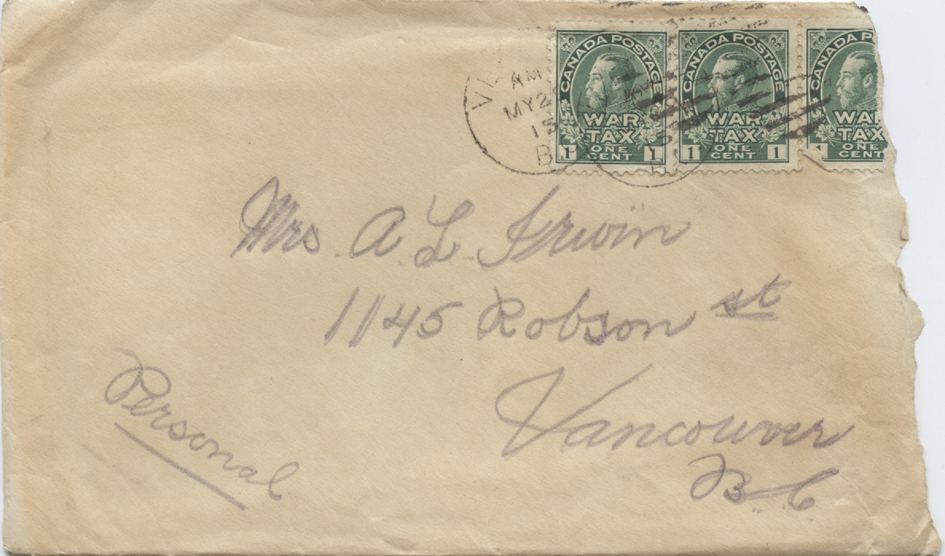 CANADA POSTAGE CANADA POSTAGE CANADA P
AM
MY 2
WAR WAR WAR
TAX TAX TAX
ONE ONE ONE
1 CENT 1 1 CENT 1 1 CENT
B
Mrs. A. L. Irwin
1145 Robson st
Vancouver
B C
Personal